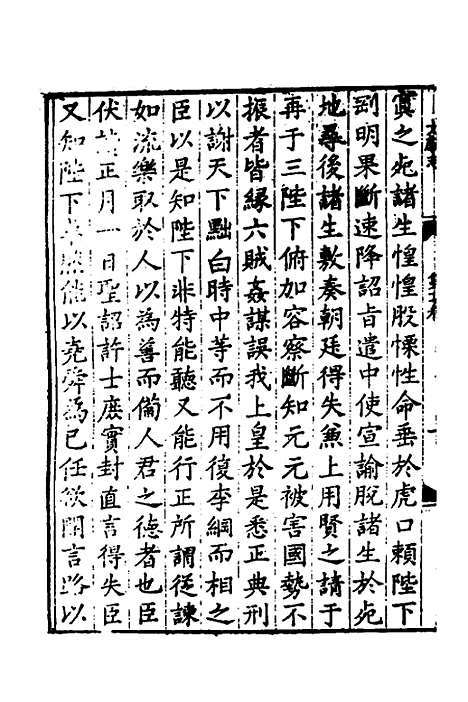 寘之死諸生惶惶股慄性命垂於虎口賴陛下
剛明果斷速降詔旨遣中使宣諭脫諸生於死
地尋後諸生敷奏朝廷得失兼上用賢之請于
再于三陛下俯加容察斷知元元被害國勢不
振者皆緣六賊姦謀誤我上皇於是悉正典刑
以謝天下黜白時中等而不用復李綱而相之
臣以是知陛下非特能聽又能行正所謂從諫
如流樂取於人以為善而備人君之德者也臣
伏 正月一日聖詔許士庶實封直言得失臣
又知陛下 然能以堯舜為己任欲開言路以